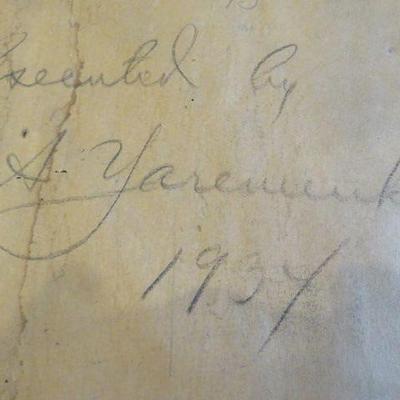 Executed by
A. Yaremenk
1937